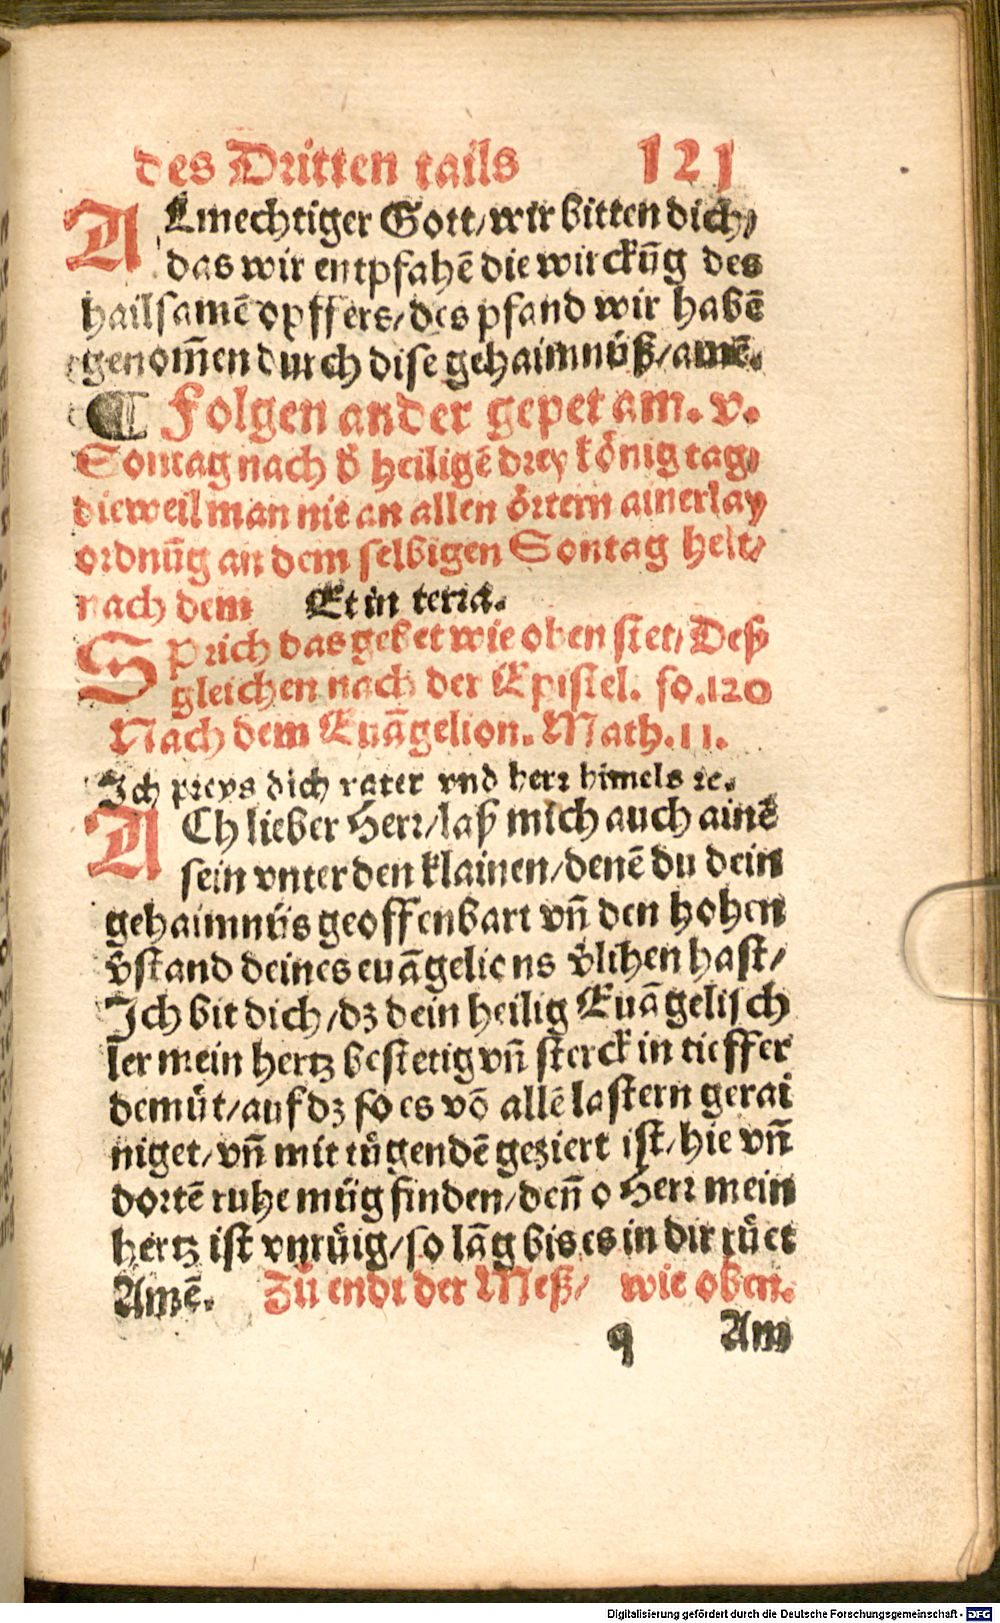 des Dritten tails 121
ALmechtiger Gott/ wir bitten dich/
das wir entpfahē die wirckūg des
hailsamē opffers/ des pfand wir habē
genom̄en durch dise gehaimnüß/ amē.
¶ Folgen ander gepet am. v.
Sontag nach d̓ heiligē drey köníg tag/
dieweil man nit an allen örtern ainerlay
ordnūg an dem selbigen Sontag helt/
nach dem Et in terra.
SPrich das gebet wie oben stet/ Deß
gleichen nach der Epistel. fo.120
Nach dem Euāgelion. Math.11.
Ich preys dich vater vnd herr himels ꝛc.
ACh lieber Herr/ laß mich auch ainē
sein vnter den klainen/ denē du dein
gehaimnüs geoffenbart vn̄ den hohen
v̓stand deines euāgelions v̓lihen hast/
Ich bit dich/ dz dein heilig Euāgelisch
ler mein hertz bestetig vn̄ sterck in tieffer
demüt/ auf dz so es vō allē lastern gerai
niget/ vn̄ mit tůgendē geziert ist/ hie vn̄
dortē ruhe müg finden/ den̄ o Herr mein
hertz ist vnrüig/ so lāg bis es in dir růet
Amē. Zů endt der Meß/ wie oben.
q Am
Digitalisierung gefördert durch die Deutsche Forschungsgemeinschaft - DFG